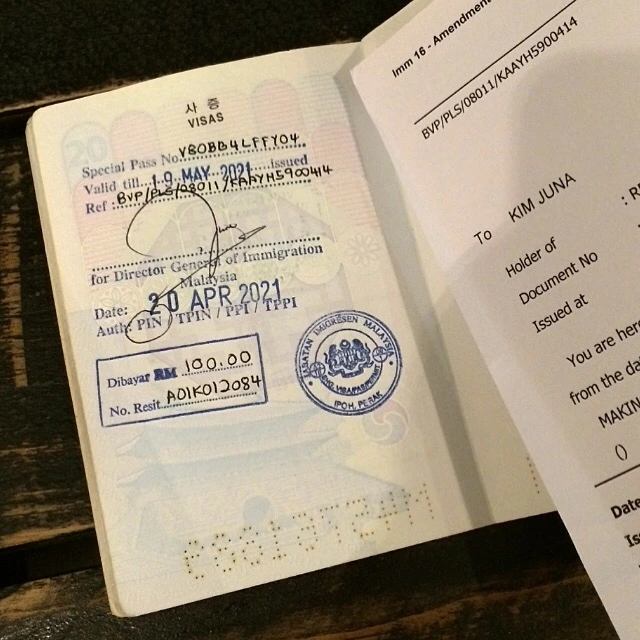 사 증
VISAS
Special Pass No. VBOBB4LFFY04
Valid till 19 MAY 2021 issued
Ref BVP/PLS/08011/KAAYH5900414
for Director General of Immigration
Malaysia
Date: 20 APR 2021
Auth: PIN / TPIN / PPI / TPPI
Dibayar RM 100.00
No. Resit A01K012084
JABATAN IMIGRESEN MALAYSIA
IPOH, PERAK
20
Imm 16 - Amendment
BVP/PLS/08011/KAAYH5900414
To KIM JUNA
Holder of :
Document No
Issued at
You are here
from the da
MAKIN
()
Date
Iss